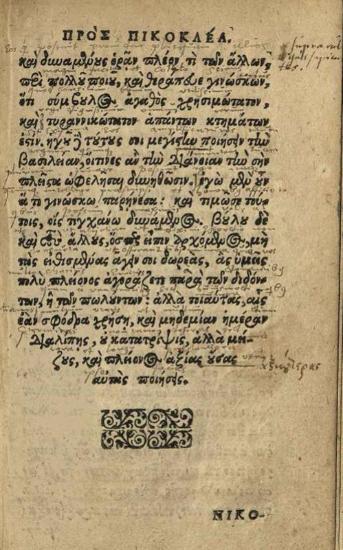 ΠΡΟΣ ΠΙΚΟΚΛΕΑ.
καὶ δυναμένους ὁρᾶν πλέον τι τῶν ἄλλων,
περὶ πολλοῦ ποιοῦ, καὶ θεράπευε γινώσκων,
ὅτι σύμβουλος ἀγαθὸς χρησιμώτατον,
καὶ τυραννικώτατον ἁπάντων κτημάτων
ἐστίν. ἡγοῦ τούτους σοι μεγίστην ποιήσειν τὴν
βασιλείαν, οἵτινες ἂν τὴν διάνοιαν τὴν σὴν
πλεῖστα ὠφελῆσαι δυνηθῶσιν. ἐγὼ μὲν οὖν
ἅ τι γινώσκω παρῄνεσα: καὶ τιμῶ σε τού-
τοις, οἷς τυγχάνω δυνάμενος. βούλου δὲ
καὶ σὺ ἄλλους, ὥσπερ εἶπον ἀρχόμενος, μὴ
τὰς εἰθισμένας ἄγειν σοι δωρεάς, ἃς ὑμεῖς
πολὺ πλείονος ἀγοράζετε παρὰ τῶν διδόν-
των, ἢ τῶν πωλούντων: ἀλλὰ τοιαύτας, αἷς
ἐὰν σφόδρα χρήσῃ, καὶ μηδεμίαν ἡμέραν
διαλίπῃς, οὐ κατατρίψεις, ἀλλὰ μεί-
ζους, καὶ πλείονος ἀξίας οὔσας
αὐτὰς ποιήσεις.
ΝΙΚΟ-